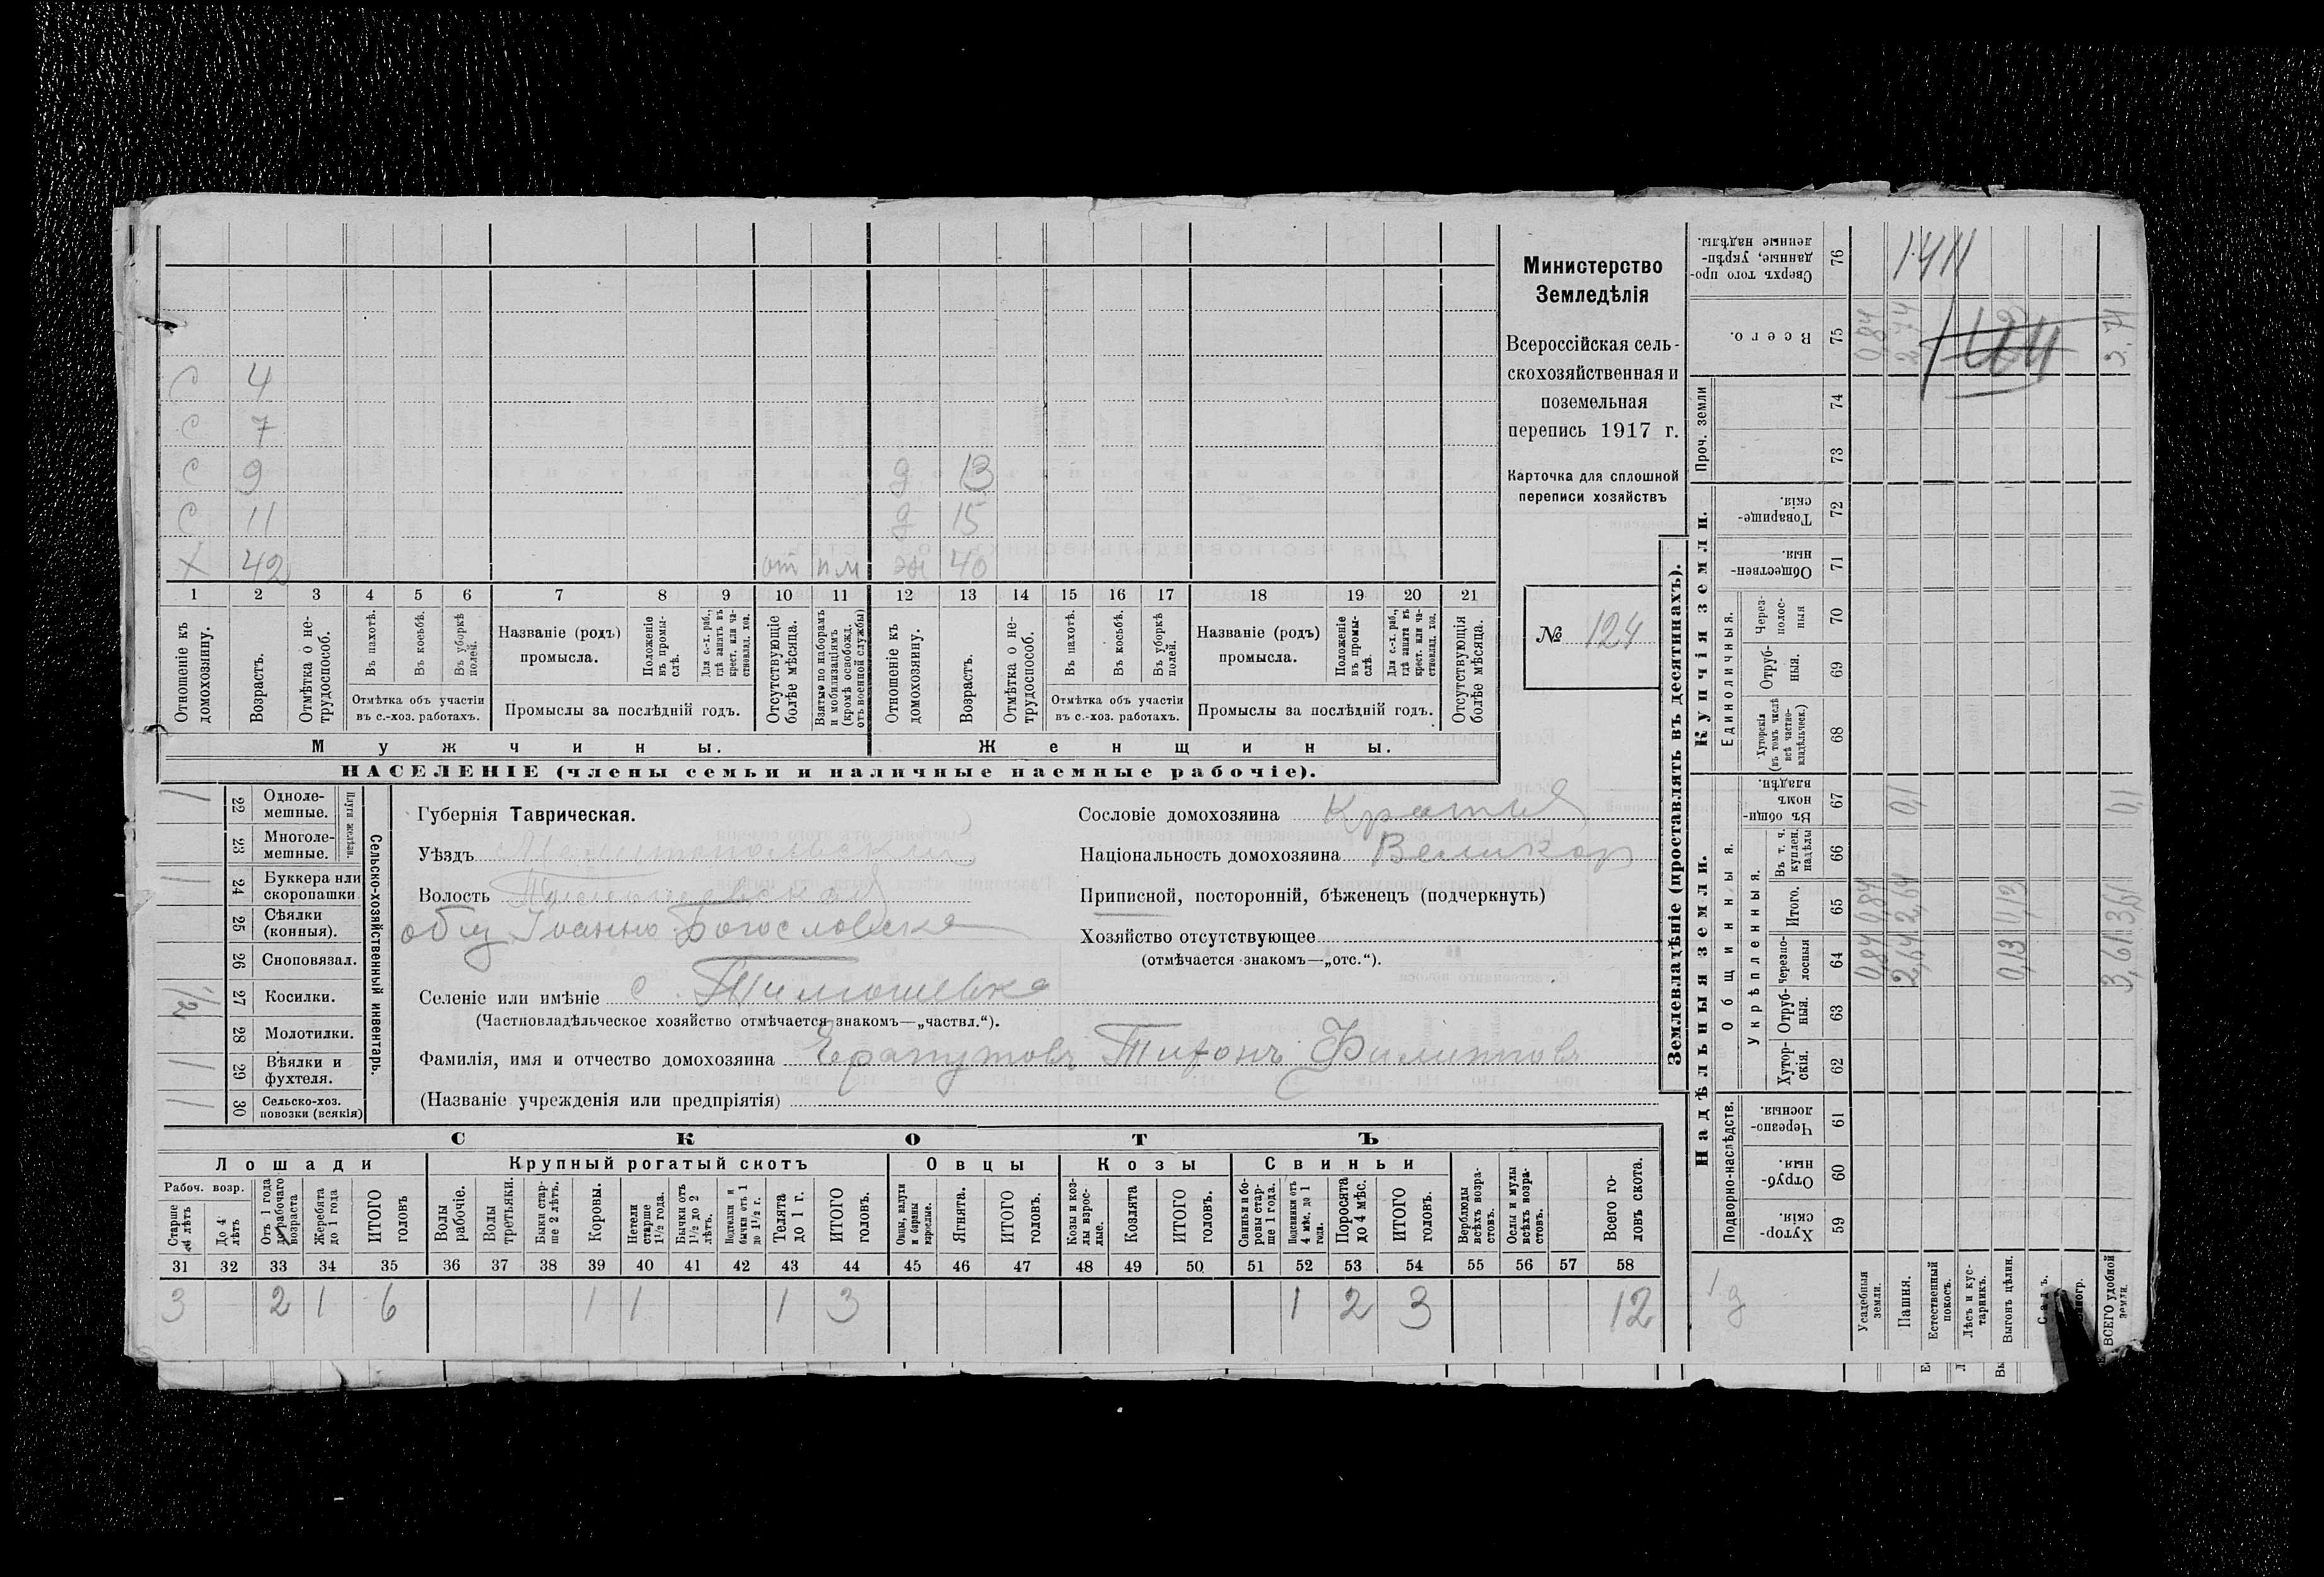 С 4
С 7
С 9 д 13
С 11 д 15
Х 42 от пм ж 40
1 2 3 4 5 6 7 8 9 10 11 12 13 14 15 16 17 18 19 20 21
Отношеніе къ домохозяину.
Возрастъ.
Отмѣтка о не-трудоспособ.
Въ пахотѣ.
Въ косьбѣ.
Въ уборкѣ полей.
Отмѣтка объ участіи
въ с.-хоз. работахъ.
Названіе (родъ)
промысла.
Положеніе въ промы-слѣ.
Для с.-х. раб., гдѣ занятъ въ крест. или ча-стновлад. хоз.
Промыслы за послѣдній годъ.
Отсутствующіе болѣе мѣсяца.
Взятые по наборамъ и мобилизаціямъ (кромѣ освобожд. отъ военной службы)
Отношеніе къ домохозяину.
Возрастъ.
Отмѣтка о не-трудоспособ.
Въ пахотѣ.
Въ косьбѣ.
Въ уборкѣ полей.
Отмѣтка объ участіи
въ с.-хоз. работахъ.
Названіе (родъ)
промысла.
Положеніе въ промы-слѣ.
Для с.-х. раб., гдѣ занята въ крест. или ча-стновлад. хоз.
Промыслы за послѣдній годъ.
Отсутствующія болѣе мѣсяца.
Мужчины.
Женщины.
НАСЕЛЕНІЕ (члены семьи и наличные наемные рабочіе).
Министерство
Земледѣлія
Всероссійская сель-
скохозяйственная и
поземельная
перепись 1917 г.
Карточка для сплошной
переписи хозяйствъ
№ 124
1 22 Одноле-мешные.
23 Многоле-мешные.
Плуги желѣзн.
1 24 Буккера или скоропашки
25 Сѣялки (конныя).
26 Сноповязал.
1/2 27 Косилки.
28 Молотилки.
1 29 Вѣялки и фухтеля.
1 30 Сельско-хоз. повозки (всякія)
Сельско-хозяйственный инвентарь.
Губернія Таврическая.
Уѣздъ Мелитопольский
Волость Тимошевская
общ Іоанно Богословска
Селеніе или имѣніе с. Тимошевка
(Частновладѣльческое хозяйство отмѣчается знакомъ—„частвл.“).
Фамилія, имя и отчество домохозяина Тихонъ Филипповъ
(Названіе учрежденія или предпріятія)
Сословіе домохозяина
Національность домохозяина Великор
Приписной, посторонній, бѣженецъ (подчеркнуть)
Хозяйство отсутствующее
(отмѣчается знакомъ—„отс.“).
СКОТЪ
Лошади
Крупный рогатый скотъ
Овцы
Козы
Свиньи
Рабоч. возр.
Старше 4 лѣтъ
До 4 лѣтъ
Отъ 1 года до рабочаго возраста
Жеребята до 1 года
ИТОГО головъ
Волы рабочіе.
Волы третьяки.
Быки стар-ше 2 лѣтъ.
Коровы.
Нетели старше 1½ года.
Бычки отъ 1½ до 2 лѣтъ.
Подтелки и бычки отъ 1 до 1½ г.
Телята до 1 г.
ИТОГО головъ.
Овцы, валухи и бараны взрослые.
Ягнята.
ИТОГО головъ.
Козы и коз-лы взрос-лые.
Козлята
ИТОГО головъ.
Свиньи и бо-ровы стар-ше 1 года.
Подсвинки отъ 4 мѣс. до 1 года.
Поросята до 4 мѣс.
ИТОГО головъ.
Верблюды всѣхъ возра-стовъ.
Ослы и мулы всѣхъ возра-стовъ.
Всего го-ловъ скота.
31 32 33 34 35 36 37 38 39 40 41 42 43 44 45 46 47 48 49 50 51 52 53 54 55 56 57 58
3 2 1 6 1 1 1 3 1 2 3 12
Землевладѣніе (проставлять въ десятинахъ).
Купчія земли.
Надѣльныя земли.
Сверхъ того про-данные, укрѣп-ленные надѣлы. 76
Всего. 75
Проч. земли 74 73
Товарище-скія. 72
Обществен-ныя. 71
Единоличныя.
Через-полос-ныя 70
Отруб-ныя. 69
Хуторскія (въ томъ числѣ всѣ частно-владѣльческ.) 68
Общинныя.
Въ общин-номъ владѣн. 67
Укрѣпленныя.
Въ т. ч. куплен. надѣлы 66
Итого. 65
Черезпо-лосныя 64
Отруб-ныя. 63
Хутор-скія. 62
Подворно-наслѣдств.
Черезпо-лосныя. 61
Отруб-ныя. 60
Хутор-скія. 59
Усадебныя земли. 0,84 0,84 0,84
Пашня. 2,64 2,64 0,1 2,74
Естественный покосъ.
Лѣсъ и кус-тарникъ.
Выгонъ цѣлин. 0,13 0,13
Садъ.
ВСЕГО удобной земли. 3,61 3,61 0,1 3,71
1411